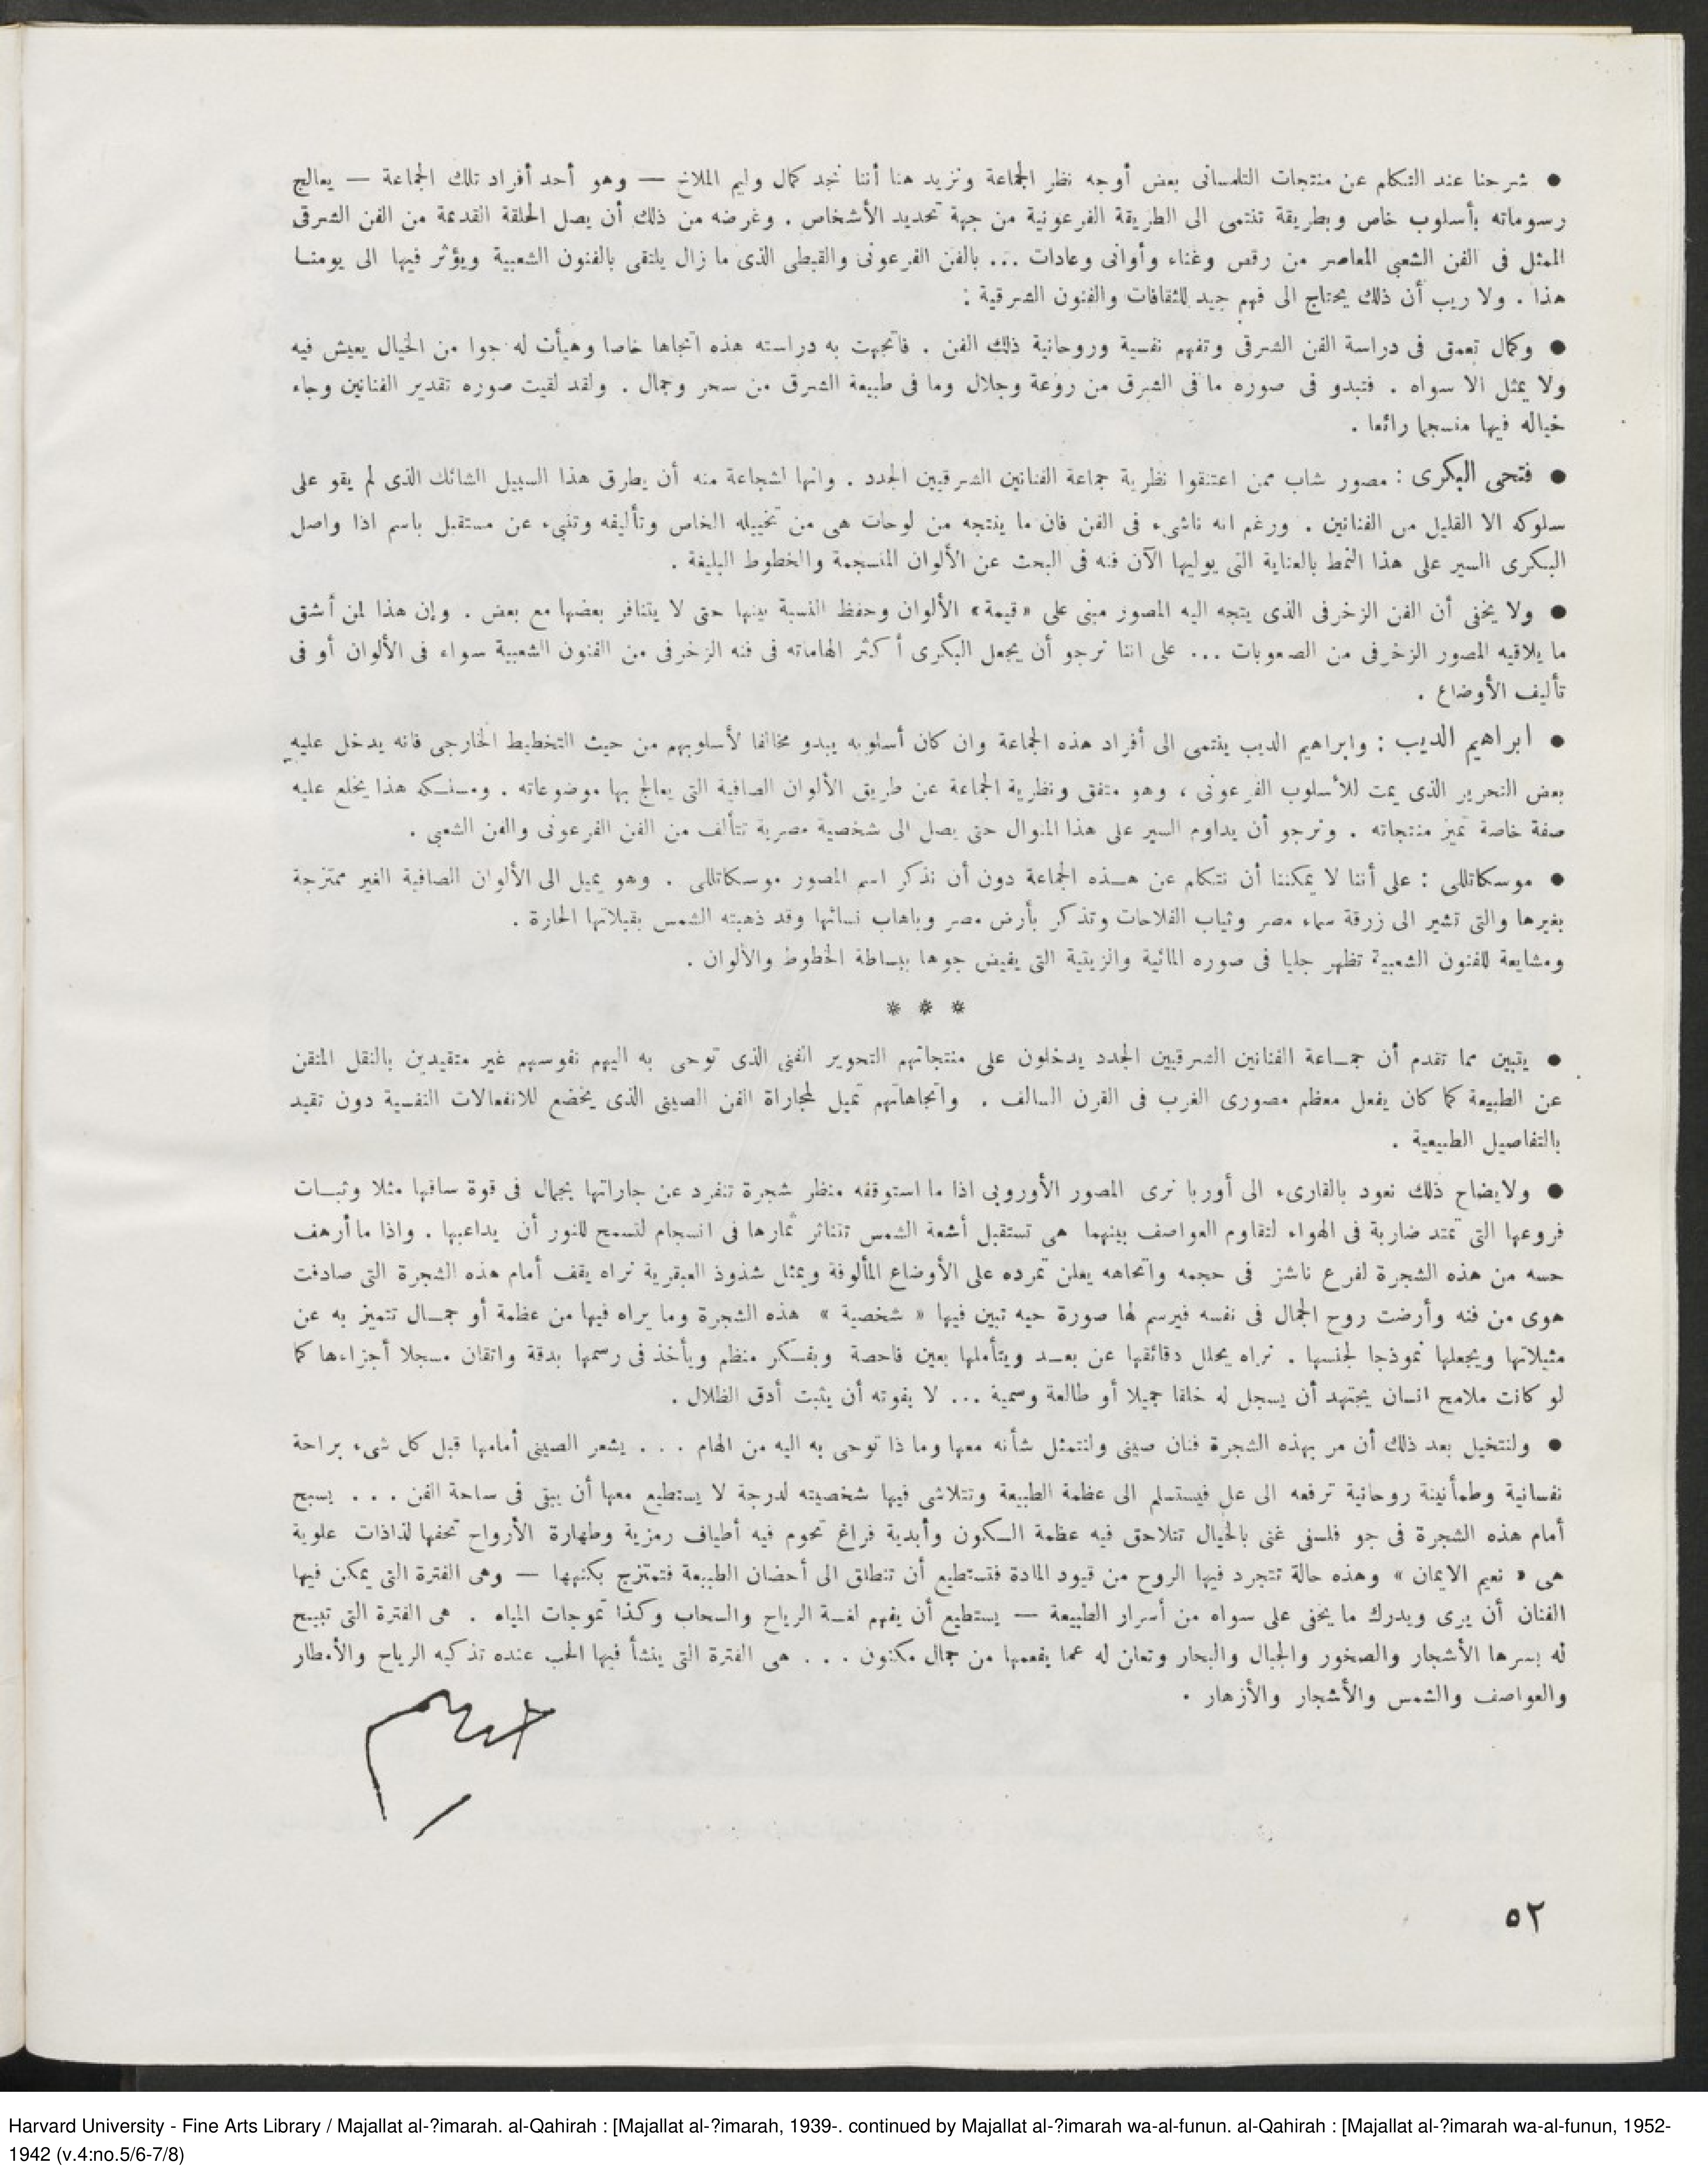 ● شرحنا عند التكلم عن منتجات التلمسانى بعض أوجه نظر الجماعة ونزيد هنا أننا نجد كمال وليم الملاخ — وهو أحد أفراد تلك الجماعة — يعالج
رسوماته بأسلوب خاص وبطريقة تنتمى الى الطريقة الفرعونية من جهة تحديد الأشخاص . وغرضه من ذلك أن يصل الحلقة القديمة من الفن الشرقى
الممثل فى الفن الشعبى المعاصر من رقص وغناء وأوانى وعادات ... بالفن الفرعونى والقبطى الذى ما زال يلتقى بالفنون الشعبية ويؤثر فيها الى يومنا
هذا . ولا ريب أن ذلك يحتاج الى فهم جيد للثقافات والفنون الشرقية :
● وكمال تعمق فى دراسة الفن الشرقى وتفهم نفسية وروحانية ذلك الفن . فاتجهت به دراسته هذه اتجاها خاصا وهيأت له جوا من الخيال يعيش فيه
ولا يمثل الا سواه . فتبدو فى صوره ما فى الشرق من روعة وجلال وما فى طبيعة الشرق من سحر وجمال . ولقد لقيت صوره تقدير الفنانين وجاء
خياله فيها منسجما رائعا .
● فتحى البكرى : مصور شاب ممن اعتنقوا نظرية جماعة الفنانين الشرقيين الجدد . وانها لشجاعة منه أن يطرق هذا السبيل الشائك الذى لم يقو على
سلوكه الا القليل من الفنانين . ورغم انه ناشىء فى الفن فان ما ينتجه من لوحات هى من تخييله الخاص وتأليفه وتنبىء عن مستقبل باسم اذا واصل
البكرى السير على هذا النمط بالعناية التى يوليها الآن فنه فى البحث عن الألوان المنسجمة والخطوط البليغة .
● ولا يخفى أن الفن الزخرفى الذى يتجه اليه المصور مبنى على «قيمة» الألوان وحفظ النسبة بينها حتى لا يتنافر بعضها مع بعض . وإن هذا لمن أشق
ما يلاقيه المصور الزخرفى من الصعوبات ... على اننا نرجو أن يجعل البكرى أكثر الهاماته فى فنه الزخرفى من الفنون الشعبية سواء فى الألوان أو فى
تأليف الأوضاع .
● ابراهيم الديب : وابراهيم الديب ينتمى الى أفراد هذه الجماعة وان كان أسلوبه يبدو مخالفا لأسلوبهم من حيث التخطيط الخارجى فانه يدخل عليه
بعض التحرير الذى يمت للأسلوب الفرعونى ، وهو متفق ونظرية الجماعة عن طريق الألوان الصافية التى يعالج بها موضوعاته . ومسلكه هذا يخلع عليه
صفة خاصة تميز منتجاته . ونرجو أن يداوم السير على هذا المنوال حتى يصل الى شخصية مصرية تتألف من الفن الفرعونى والفن الشعبى .
● موسكاتللى : على أننا لا يمكننا أن نتكلم عن هذه الجماعة دون أن نذكر اسم المصور موسكاتللى . وهو يميل الى الألوان الصافية الغير ممتزجة
بغيرها والتى تشير الى زرقة سماء مصر وثياب الفلاحات وتذكر بأرض مصر وباهاب نسائها وقد ذهبته الشمس بقبلاتها الحارة .
ومشايعة للفنون الشعبية تظهر جليا فى صوره المائية والزيتية التى يفيض جوها ببساطة الخطوط والألوان .
* * *
● يتبين مما تقدم أن جماعة الفنانين الشرقيين الجدد يدخلون على منتجاتهم التحوير الفنى الذى توحى به اليهم نفوسهم غير متقيدين بالنقل المتقن
عن الطبيعة كما كان يفعل معظم مصورى الغرب فى القرن السالف . واتجاهاتهم تميل لمجاراة الفن الصينى الذى يخضع للانفعالات النفسية دون تقيد
بالتفاصيل الطبيعية .
● ولايضاح ذلك نعود بالقارىء الى أوربا نرى المصور الأوروبى اذا ما استوقفه منظر شجرة تنفرد عن جاراتها بجمال فى قوة ساقها مثلا وثبات
فروعها التى تمتد ضاربة فى الهواء لتقاوم العواصف بينهما هى تستقبل أشعة الشمس تتناثر ثمارها فى انسجام لتسمح للنور أن يداعبها . واذا ما أرهف
حسه من هذه الشجرة لفرع ناشز فى حجمه واتجاهه يعلن تمرده على الأوضاع المألوفة ويمثل شذوذ العبقرية نراه يقف أمام هذه الشجرة التى صادفت
هوى من فنه وأرضت روح الجمال فى نفسه فيرسم لها صورة حيه تبين فيها « شخصية » هذه الشجرة وما يراه فيها من عظمة أو جمال تتميز به عن
مثيلاتها ويجعلها نموذجا لجنسها . نراه يحلل دقائقها عن بعد ويتأملها بعين فاحصة وبفكر منظم ويأخذ فى رسمها بدقة واتقان مسجلا أجزاءها كما
لو كانت ملامح انسان يجتهد أن يسجل له خلقا جميلا أو طالعة وسمية ... لا يفوته أن يثبت أدق الظلال .
● ولنتخيل بعد ذلك أن مر بهذه الشجرة فنان صينى ولنتمثل شأنه معها وما ذا توحى به اليه من الهام ... يشعر الصينى أمامها قبل كل شىء براحة
نفسانية وطمأنينة روحانية ترفعه الى عل فيستسلم الى عظمة الطبيعة وتتلاشى فيها شخصيته لدرجة لا يستطيع معها أن يبقى فى ساحة الفن ... يسبح
أمام هذه الشجرة فى جو فلسفى غنى بالخيال تتلاحق فيه عظمة السكون وأبدية فراغ تحوم فيه أطياف رمزية وطهارة الأرواح تحفها لذاذات علوية
هى « نعيم الايمان » وهذه حالة تتجرد فيها الروح من قيود المادة فتستطيع أن تنطلق الى أحضان الطبيعة فتمتزج بكنهها — وهى الفترة التى يمكن فيها
الفنان أن يرى ويدرك ما يخفى على سواه من أسرار الطبيعة — يستطيع أن يفهم لغة الرياح والسحاب وكذا تموجات المياه . هى الفترة التى تبيح
له بسرها الأشجار والصخور والجبال والبحار وتعلن له عما يفعمها من جمال مكنون ... هى الفترة التى ينشأ فيها الحب عنده تذكيه الرياح والأمطار
والعواصف والشمس والأشجار والأزهار .
٥٢
Harvard University - Fine Arts Library / Majallat al-?imarah. al-Qahirah : [Majallat al-?imarah, 1939-. continued by Majallat al-?imarah wa-al-funun. al-Qahirah : [Majallat al-?imarah wa-al-funun, 1952-
1942 (v.4:no.5/6-7/8)